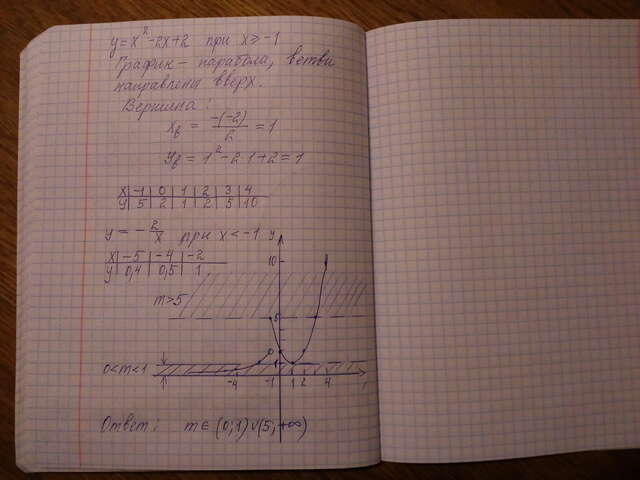 y = x² - 2x + 2 при x ≥ -1
График - парабола, ветви
направлены вверх.
Вершина:
x_в = -(-2)/2 = 1
y_в = 1² - 2·1 + 2 = 1
x | -1 | 0 | 1 | 2 | 3 | 4
y | 5 | 2 | 1 | 2 | 5 | 10
y = - 2/x при x < -1
x | -5 | -4 | -2
y | 0,4 | 0,5 | 1
y
10
m>5
5
0<m<1
1
-4 -1 1 2 4
Ответ: m ∈ (0; 1) ∪ (5; +∞)